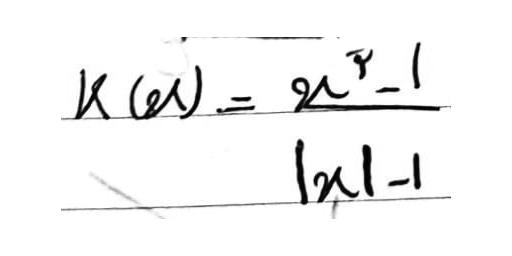 K(x) = x^۲ - 1
|x| - 1